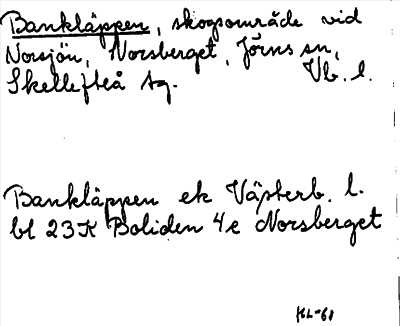 Bankläppen, skogsområde vid
Norsjön, Norsberget, Jörns sn,
Skellefteå tg. Vb. l.
Bankläppen ek Västerb. l.
bl 23K Boliden 4e Norsberget
HL-61